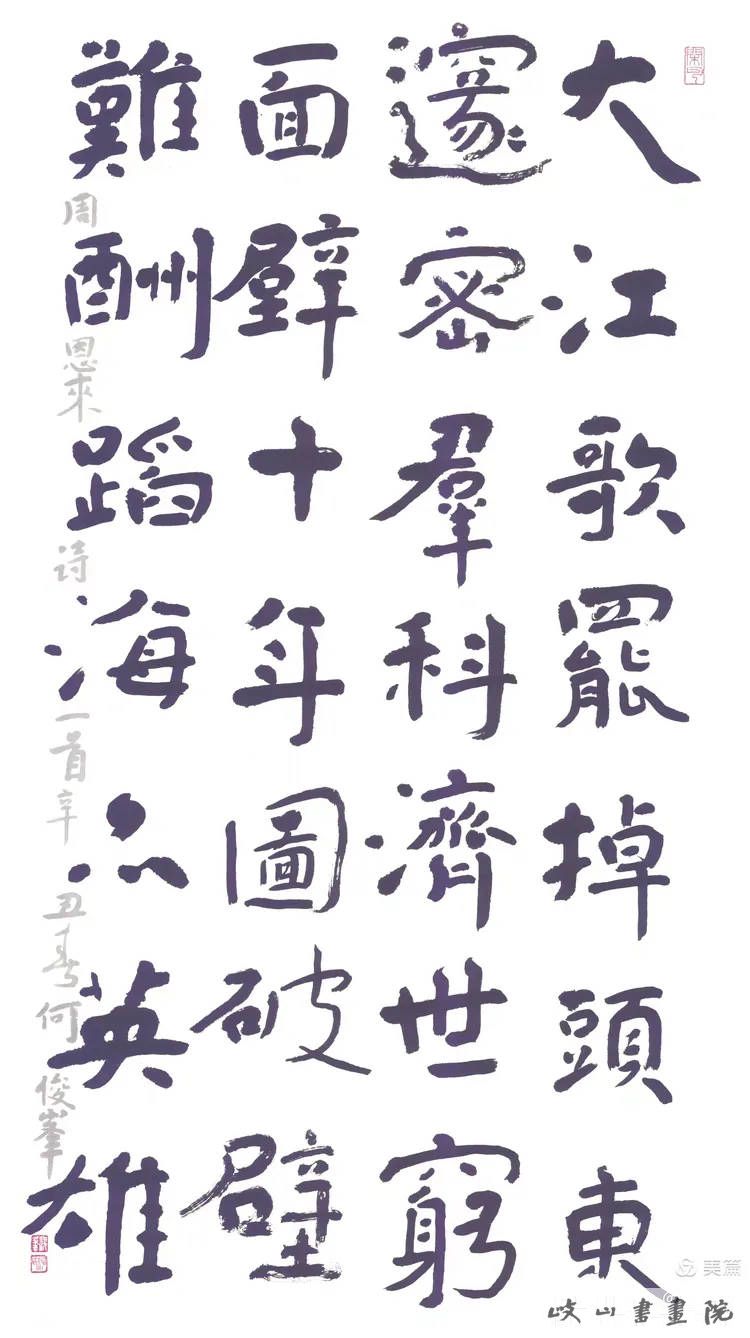 大江歌罷掉頭東
邃密羣科濟世窮
面壁十年圖破壁
難酬蹈海亦英雄
周恩來诗一首辛丑春何俊峯
美篇
岐山書畫院